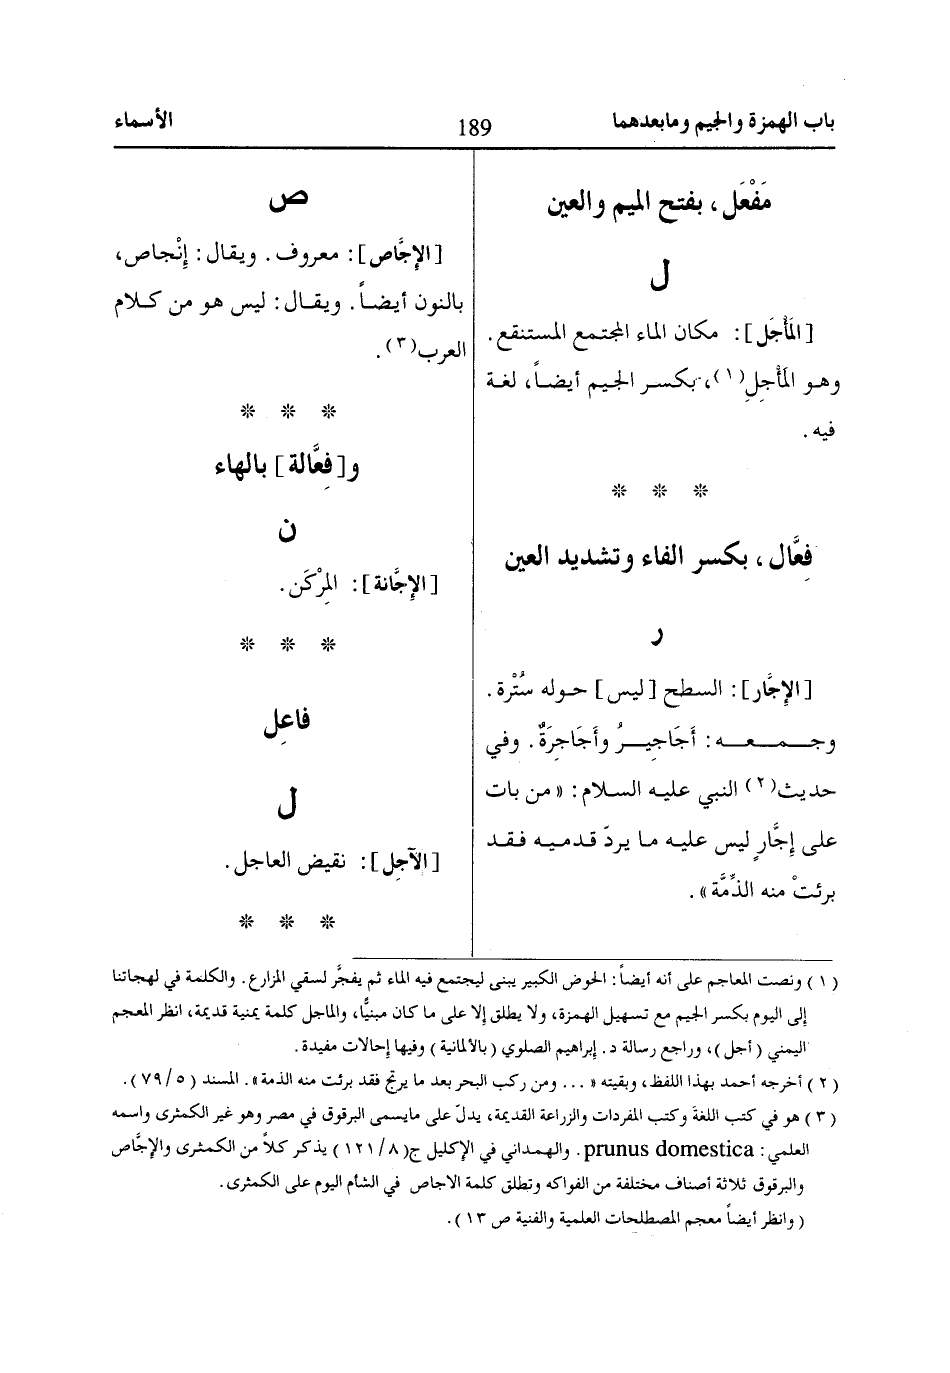 باب الهمزة والجيم ومابعدهما
189
الأسماء
مَفْعَل ، بفتح الميم والعين
ل
[المَأْجَل]: مكان الماء المجتمع المستنقع.
وهو المَأْجِل(١)، بكسر الجيم أيضاً، لغة
فيه.
* * *
فِعَّال ، بكسر الفاء وتشديد العين
ر
[الإِجَّار]: السطح [ليس] حوله سُتْرة.
وجمعه: أَجَاجِيرُ وأَجَاجِرَةٌ. وفي
حديث(٢) النبي عليه السلام: «من بات
على إِجَّارٍ ليس عليه ما يردّ قدميه فقد
برئتْ منه الذِّمَّة».
ص
[الإِجَّاص]: معروف. ويقال: إِنْجاص،
بالنون أيضاً. ويقال: ليس هو من كلام
العرب(٣).
* * *
و[فِعَّالة] بالهاء
ن
[الإِجَّانة]: المِرْكَن.
* * *
فاعِل
ل
[الآجِل]: نقيض العاجل.
* * *
(١) ونصت المعاجم على أنه أيضاً: الحوض الكبير يبنى ليجتمع فيه الماء ثم يفجَّر لسقي المزارع. والكلمة في لهجاتنا
إلى اليوم بكسر الجيم مع تسهيل الهمزة، ولا يطلق إلا على ما كان مبنيًّا، والماجل كلمة يمنية قديمة، انظر المعجم
اليمني (أجل)، وراجع رسالة د. إبراهيم الصلوي (بالألمانية) وفيها إحالات مفيدة.
(٢) أخرجه أحمد بهذا اللفظ، وبقيته «... ومن ركب البحر بعد ما يرتج فقد برئت منه الذمة». المسند (٥/٧٩).
(٣) هو في كتب اللغة وكتب المفردات والزراعة القديمة، يدلّ على مايسمى البرقوق في مصر وهو غير الكمثرى واسمه
العلمي: prunus domestica. والهمداني في الإكليل ج(٨/١٢١) يذكر كلاً من الكمثرى والإجَّاص
والبرقوق ثلاثة أصناف مختلفة من الفواكه وتطلق كلمة الاجاص في الشأم اليوم على الكمثرى.
(وانظر أيضاً معجم المصطلحات العلمية والفنية ص ١٣).